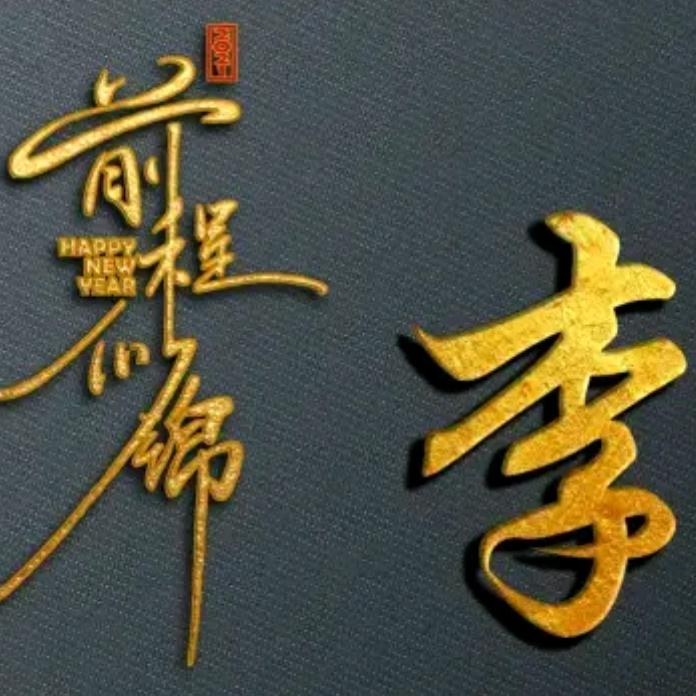 前程
HAPPY
NEW
YEAR
似锦
李